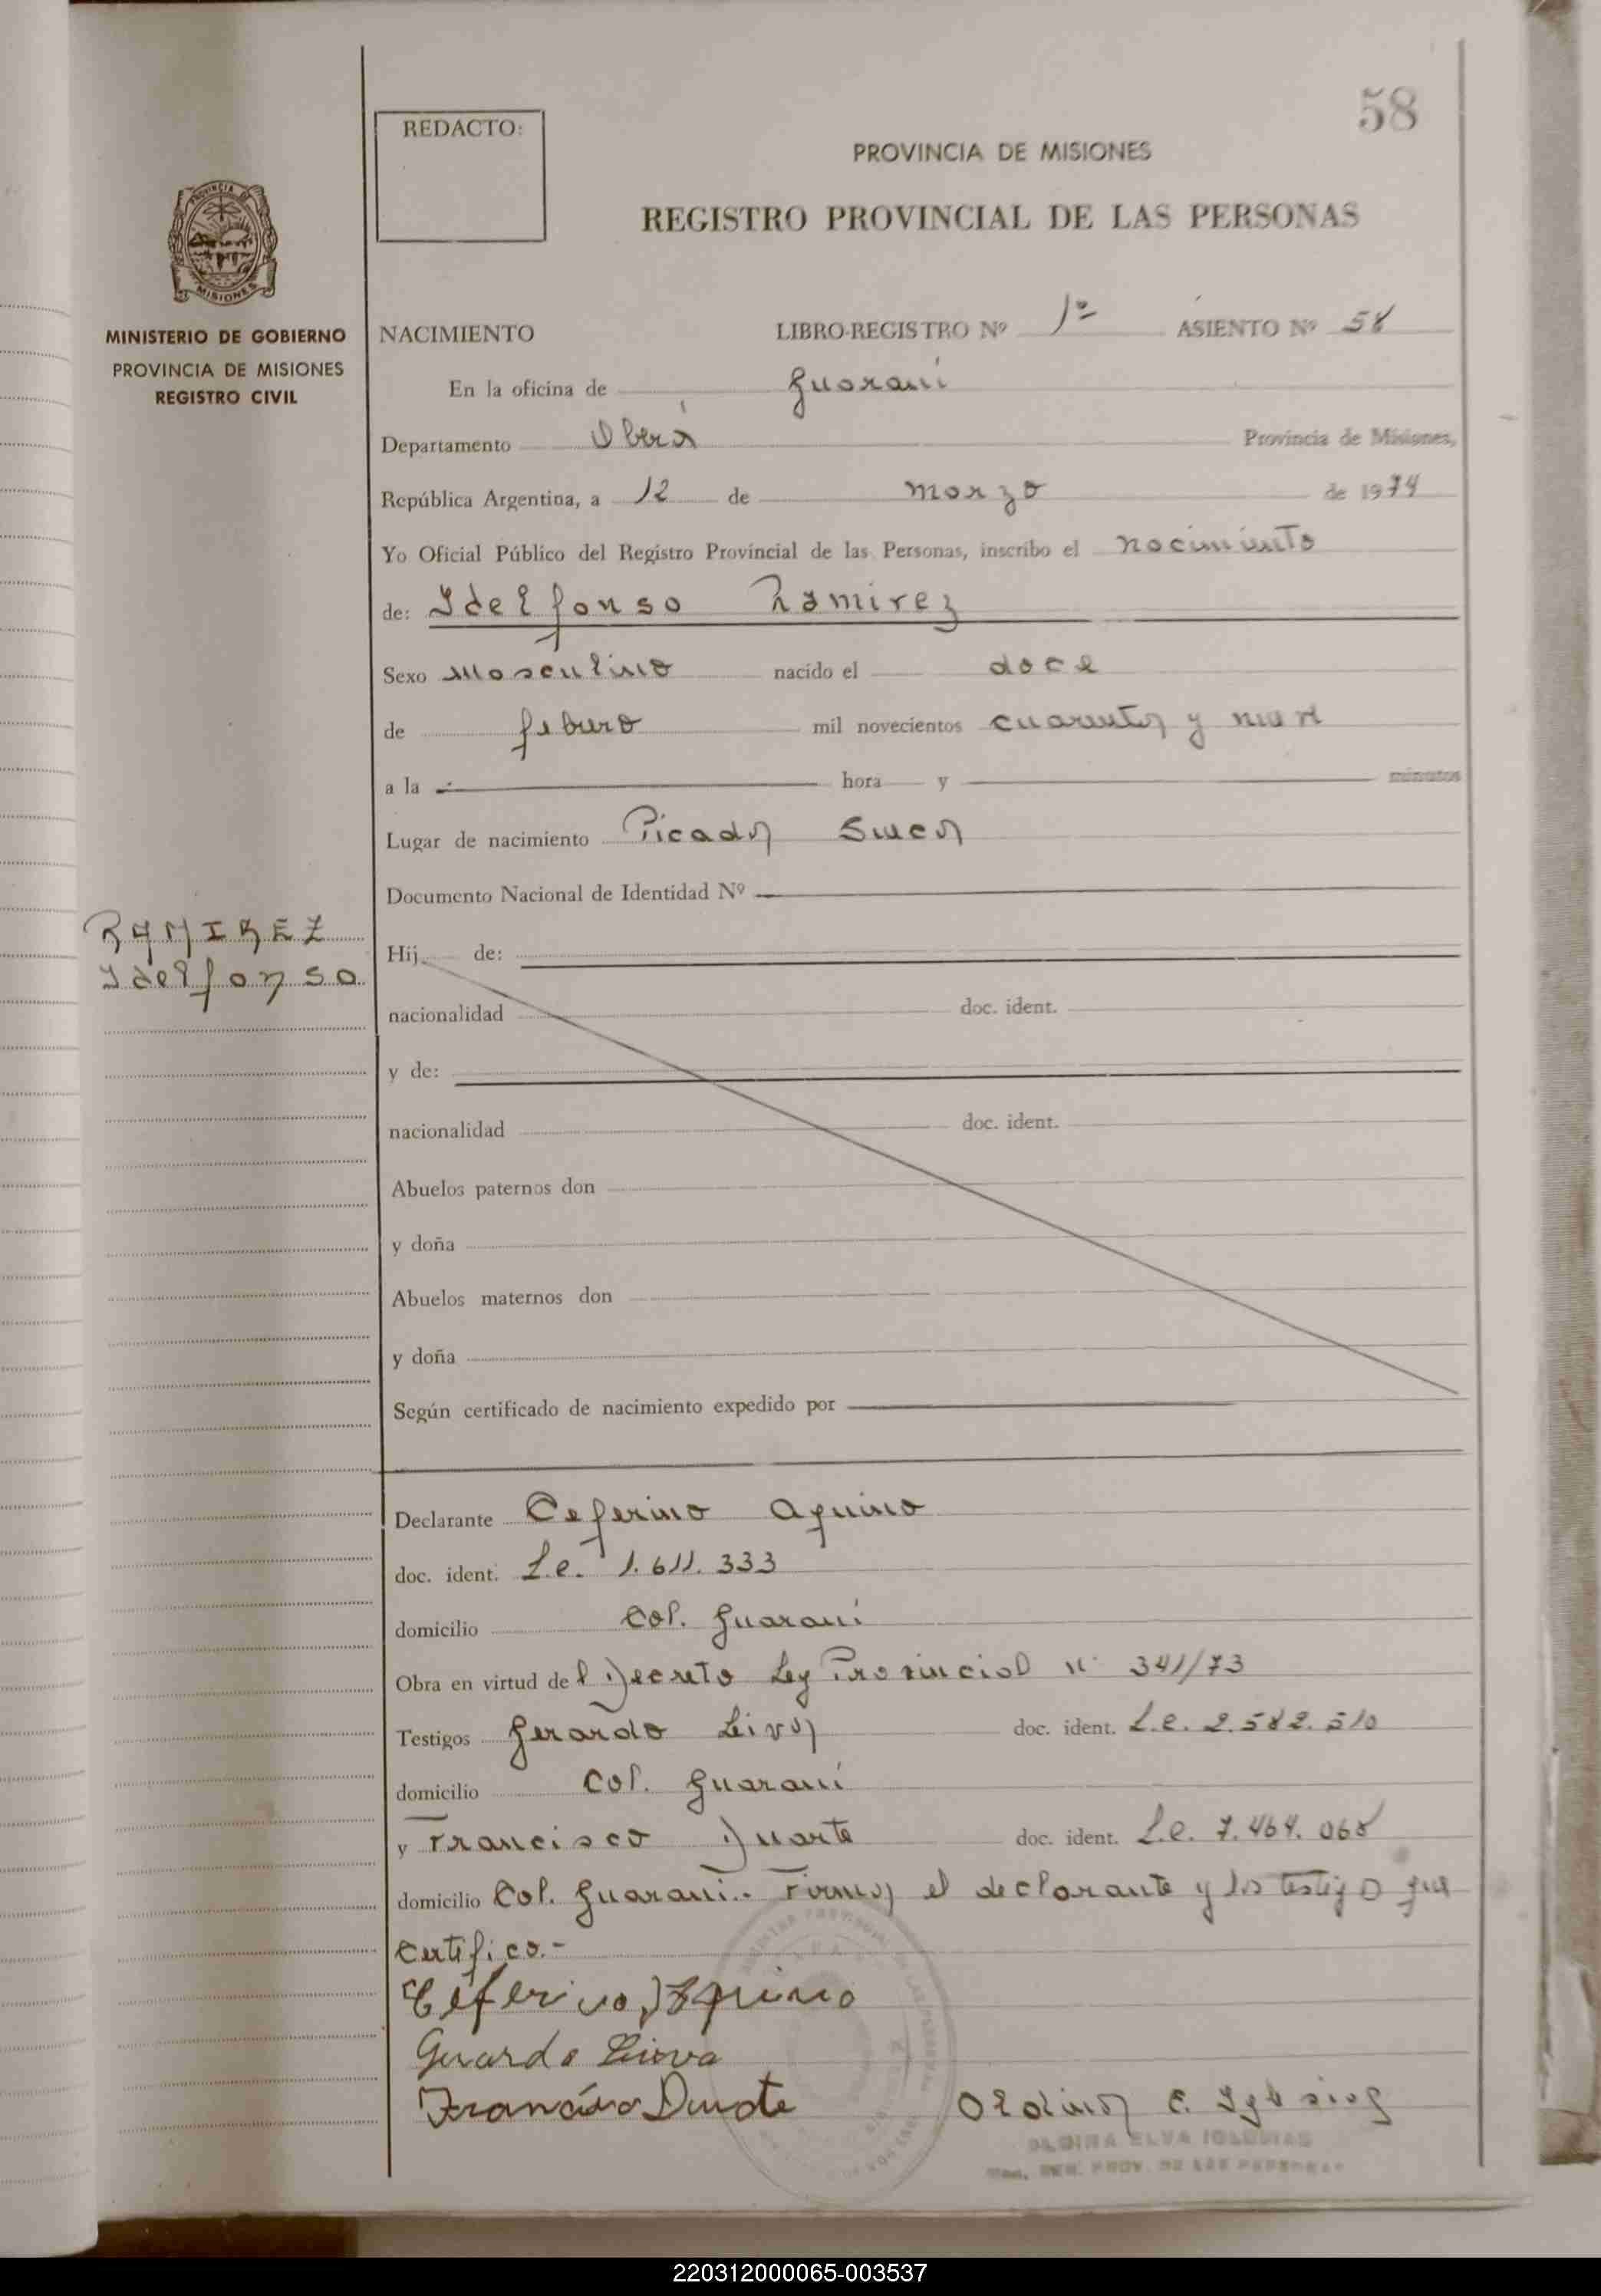 58
REDACTO:
PROVINCIA DE MISIONES
REGISTRO PROVINCIAL DE LAS PERSONAS
PROVINCIA DE
MISIONES
MINISTERIO DE GOBIERNO
PROVINCIA DE MISIONES
REGISTRO CIVIL
NACIMIENTO LIBRO-REGISTRO Nº 1º ASIENTO Nº 58
En la oficina de Guaraní
Departamento Oberá Provincia de Misiones,
República Argentina, a 12 de marzo de 1974
Yo Oficial Público del Registro Provincial de las Personas, inscribo el nacimiento
de: Idelfonso Ramirez
Sexo Masculino nacido el doce
de febrero mil novecientos cuarenta y nueve
a la hora y minutos
Lugar de nacimiento Picada Sueca
Documento Nacional de Identidad Nº
RAMIREZ
Idelfonso
Hij de:
nacionalidad doc. ident.
y de:
nacionalidad doc. ident.
Abuelos paternos don
y doña
Abuelos maternos don
y doña
Según certificado de nacimiento expedido por
Declarante Ceferino Aquino
doc. ident. L.e. 1.611.333
domicilio Col. Guaraní
Obra en virtud del Decreto Ley Provincial Nº 341/73
Testigos Gerardo Leiva doc. ident. L.e. 2.582.510
domicilio Col. Guaraní
y Francisco Duarte doc. ident. L.e. 7.464.068
domicilio Col. Guaraní.- Firma el declarante y los testigo que
certifico.-
Ceferino Aquino
Gerardo Leiva
Francisco Duarte Oldina E. Iglesias
OLDINA ELVA IGLESIAS
REG. PROV. DE LAS PERSONAS
220312000065-003537